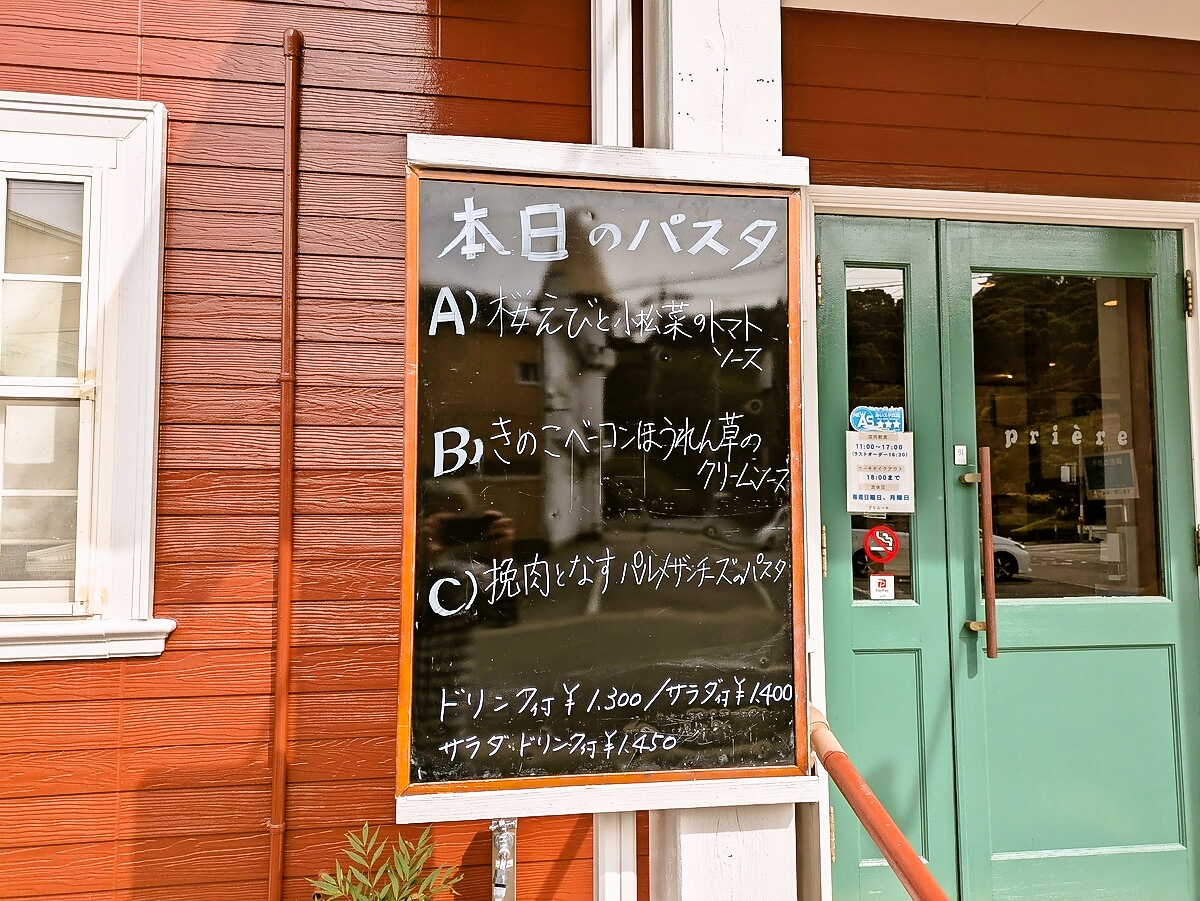 本日のパスタ
A) 桜えびと小松菜のトマト
ソース
B) きのこベーコンほうれん草の
クリームソース
C) 挽肉となすパルメザンチーズのパスタ
ドリンク付¥1.300/サラダ付¥1.400
サラダ・ドリンク付¥1.450
prière
店内飲食
11:00〜17:00
(ラストオーダー16:30)
ケーキテイクアウト
18:00まで
定休日
毎週日曜日、月曜日
プリエール
PayPay